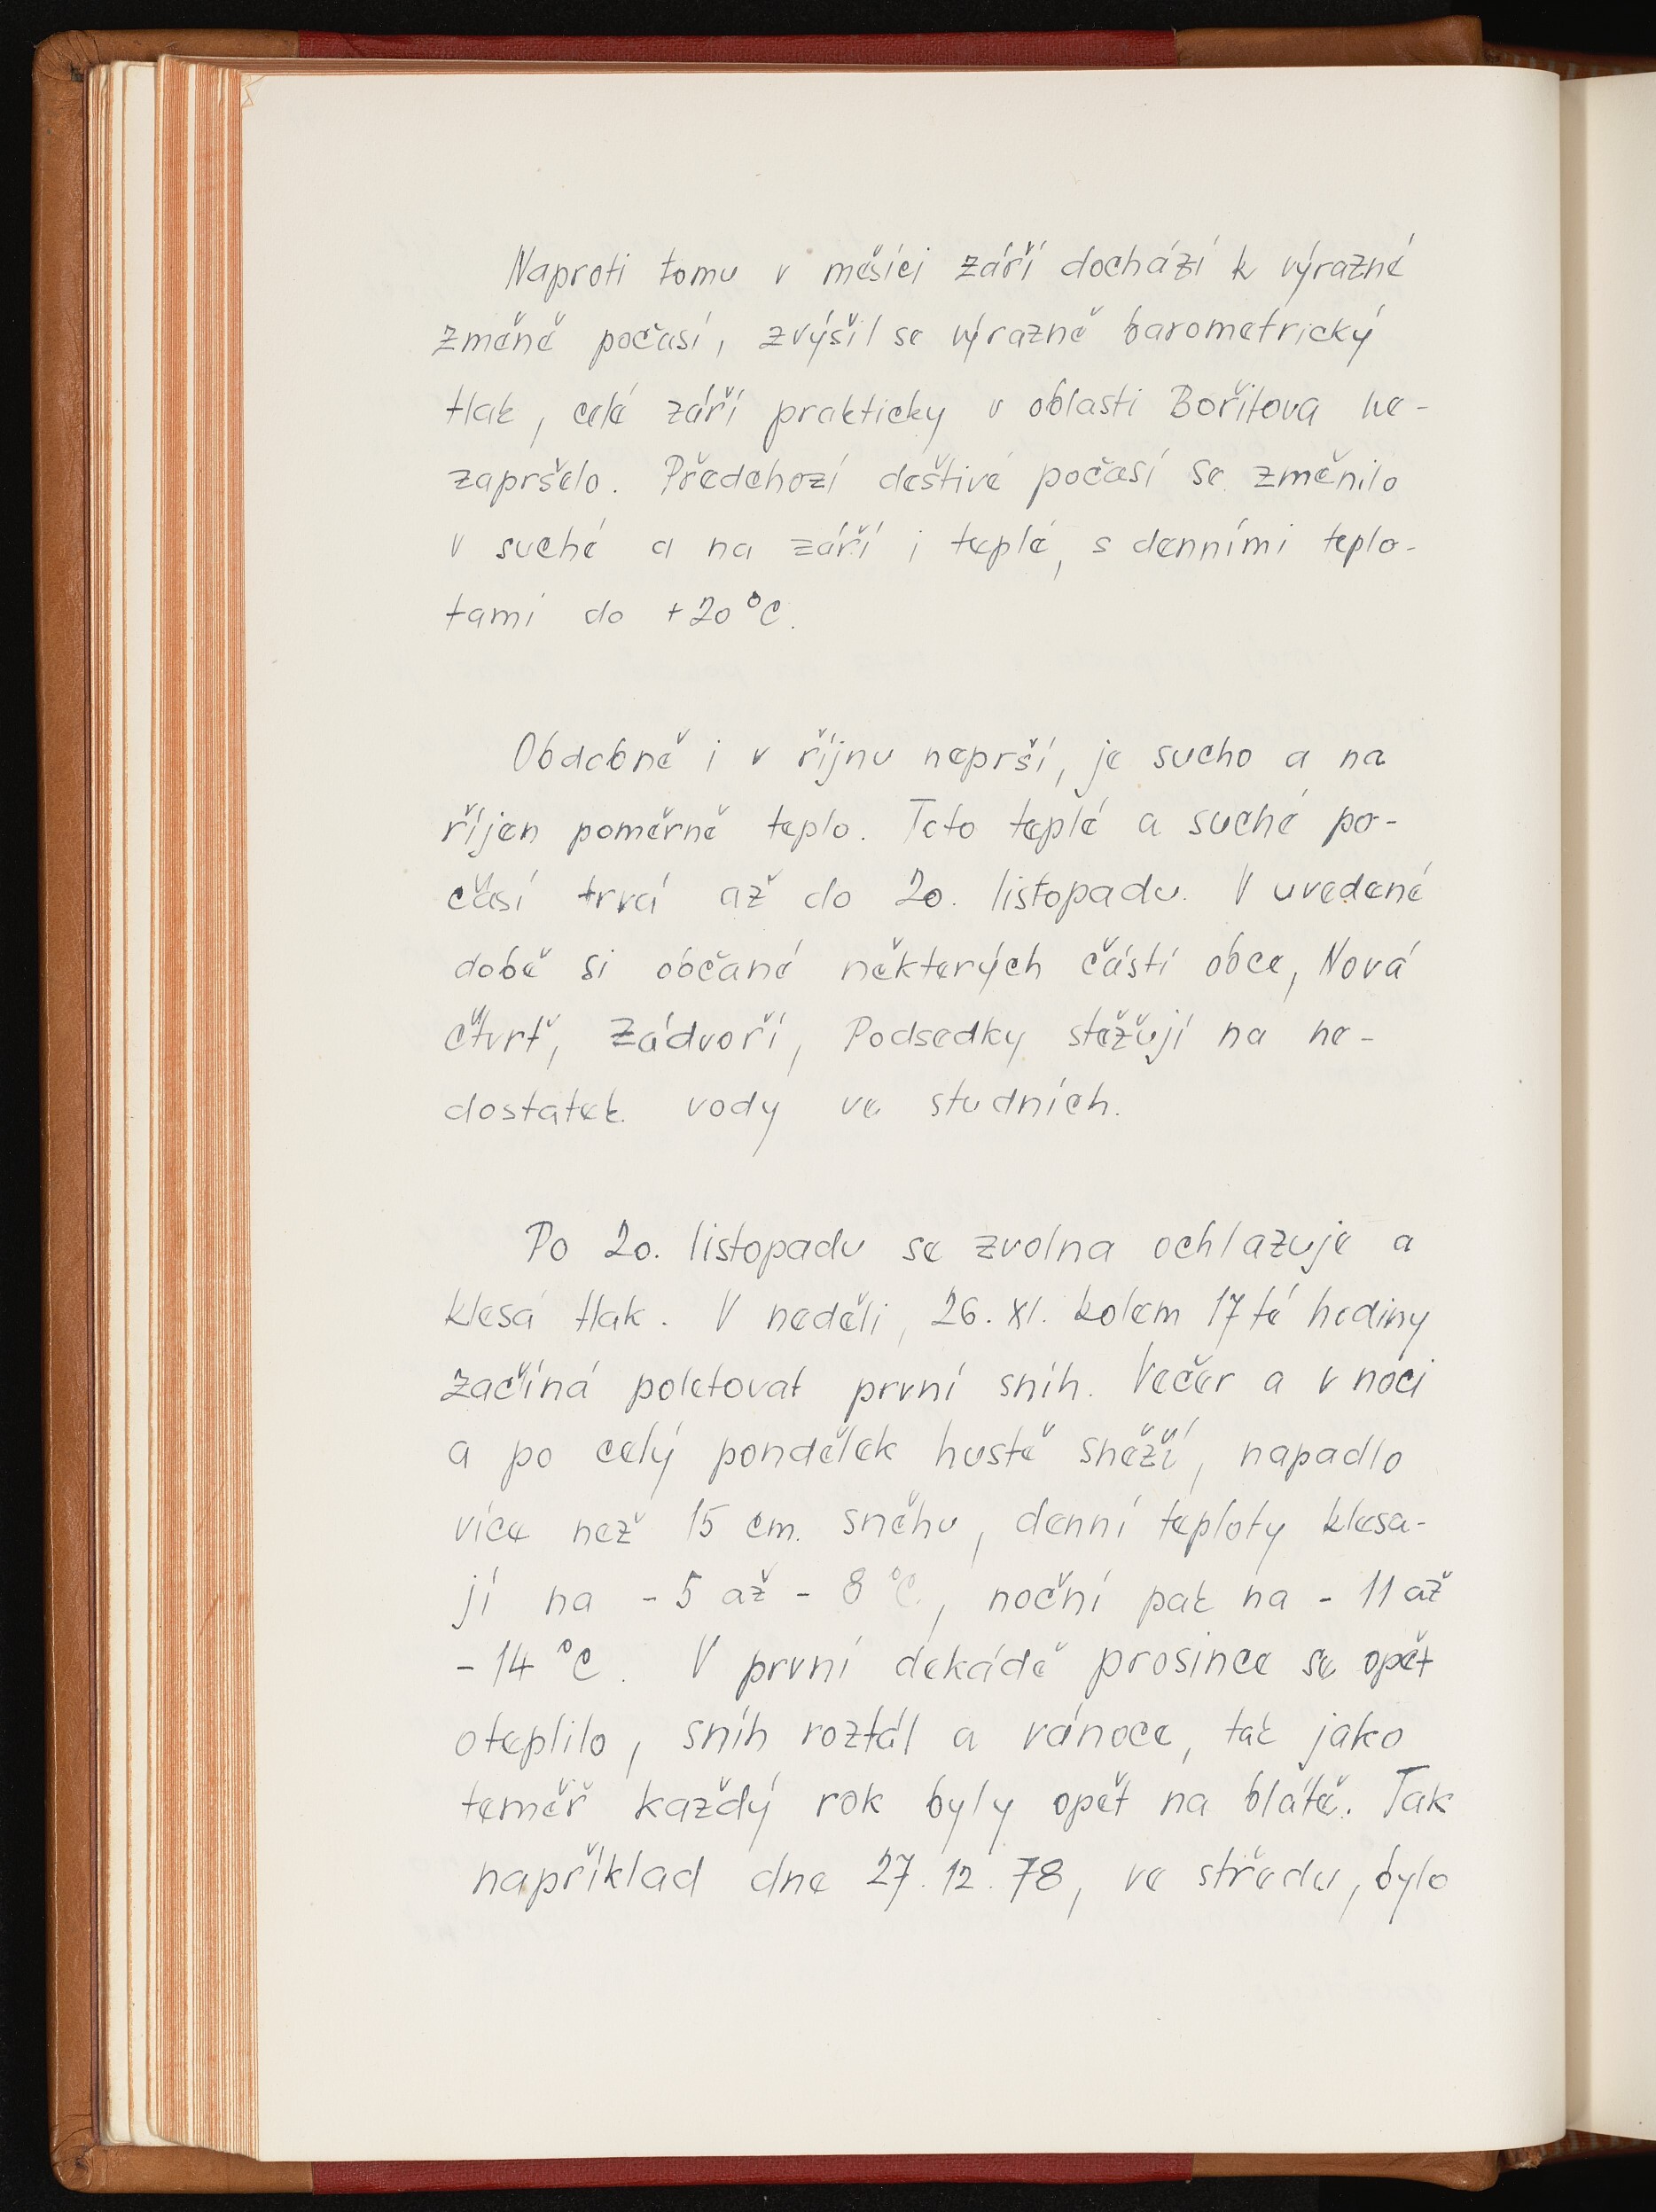 Naproti tomu v měsíci září dochází k výrazné
změně počasí, zvýšil se výrazně barometrický
tlak, celé září prakticky v oblasti Bořitova ne-
zapršelo. Předchozí deštivé počasí se změnilo
v suché a na září i teplé, s denními teplo-
tami do +20 °C.
Obdobně i v říjnu neprší, je sucho a na
říjen poměrně teplo. Toto teplé a suché po-
časí trvá až do 20. listopadu. V uvedené
době si občané některých částí obce, Nová
čtvrť, Zádvoří, Podsedky stěžují na ne-
dostatek vody ve studních.
Po 20. listopadu se zvolna ochlazuje a
klesá tlak. V neděli, 26. XI. kolem 17 té hodiny
začíná poletovat první sníh. Večer a v noci
a po celý pondělek hustě sněží, napadlo
více než 15 cm. sněhu, denní teploty klesa-
jí na - 5 až - 8 °C, noční pak na - 11 až
- 14 °C. V první dekádě prosince se opět
oteplilo, sníh roztál a vánoce, tak jako
teměř každý rok byly opět na blátě. Tak
například dne 27.12.78, ve středu, bylo